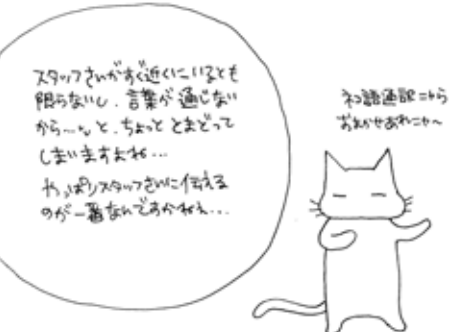 スタッフさんがすぐ近くにいるとも
限らないし、言葉が通じない
から…、と、ちょっと とまどって
しまいますよね…
やっぱりスタッフさんに伝える
のが一番なんですかねぇ…
ネコ語通訳ニャら
おまかせあれニャ〜